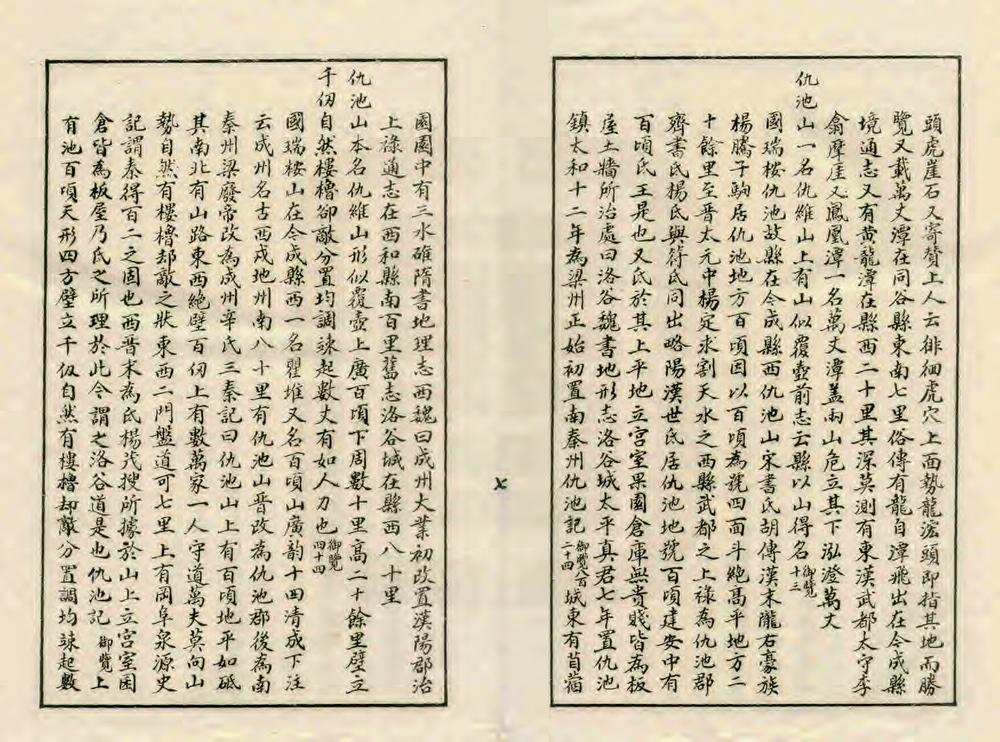 頭虎崖石又寄贊上人云徘徊虎穴上面勢龍泓頭即指其地而勝
覽又載萬丈潭在同谷縣東南七里俗傳有龍自潭飛出在今成縣
境通志又有黃龍潭在縣西二十里其深莫測有東漢武都太守李
翕摩崖又鳳凰潭一名萬丈潭蓋兩山危立其下泓澄萬丈
仇池山一名仇維山上有山似覆壺前志云縣以山得名御覽十三
國瑞桉仇池故縣在今成縣西仇池山宋書氐胡傳漢末隴右豪族
楊騰子駒居仇池地方百頃因以百頃為號四面斗絕高平地方二
十餘里至晉太元中楊定求割天水之西縣武都之上祿為仇池郡
齊書氐楊氐與苻氐同出略陽漢世氐居仇池地號百頃建安中有
百頃氐王是也又氐於其上平地立宮室果園倉庫無貴賤皆為板
屋土牆所治處曰洛谷魏書地形志洛谷城太平真君七年置仇池
鎮太和十二年為梁州正始初置南秦州仇池記御覽八百二十四城東有苜蓿
園園中有三水碓隋書地理志西魏曰成州大業初改置漢陽郡治
上祿通志在西和縣南百里舊志洛谷城在縣西八十里
仇池山本名仇維山形似覆壺上廣百頃下周數十里高二十餘里壁立
千仞自然樓櫓卻敵分置均調竦起數丈有如人刀也御覽四十四
國瑞桉山在今成縣西一名瞿堆又名百頃山廣韻十四清成下注
云成州名古西戎地州南八十里有仇池山晉改為仇池郡後為南
秦州梁廢帝改為成州辛氏三秦記曰仇池山上有百頃地平如砥
其南北有山路東西絕壁百仞上有數萬家一人守道萬夫莫向山
勢自然有樓櫓却敵之狀東西二門盤道可七里上有岡阜泉源史
記謂秦得百二之固也西晉末為氐楊茂搜所據於山上立宮室囷
倉皆為板屋乃氐之所理於此今謂之洛谷道是也仇池記御覽上
有池百頃天形四方壁立千仭自然有樓櫓却敵分置調均竦起數